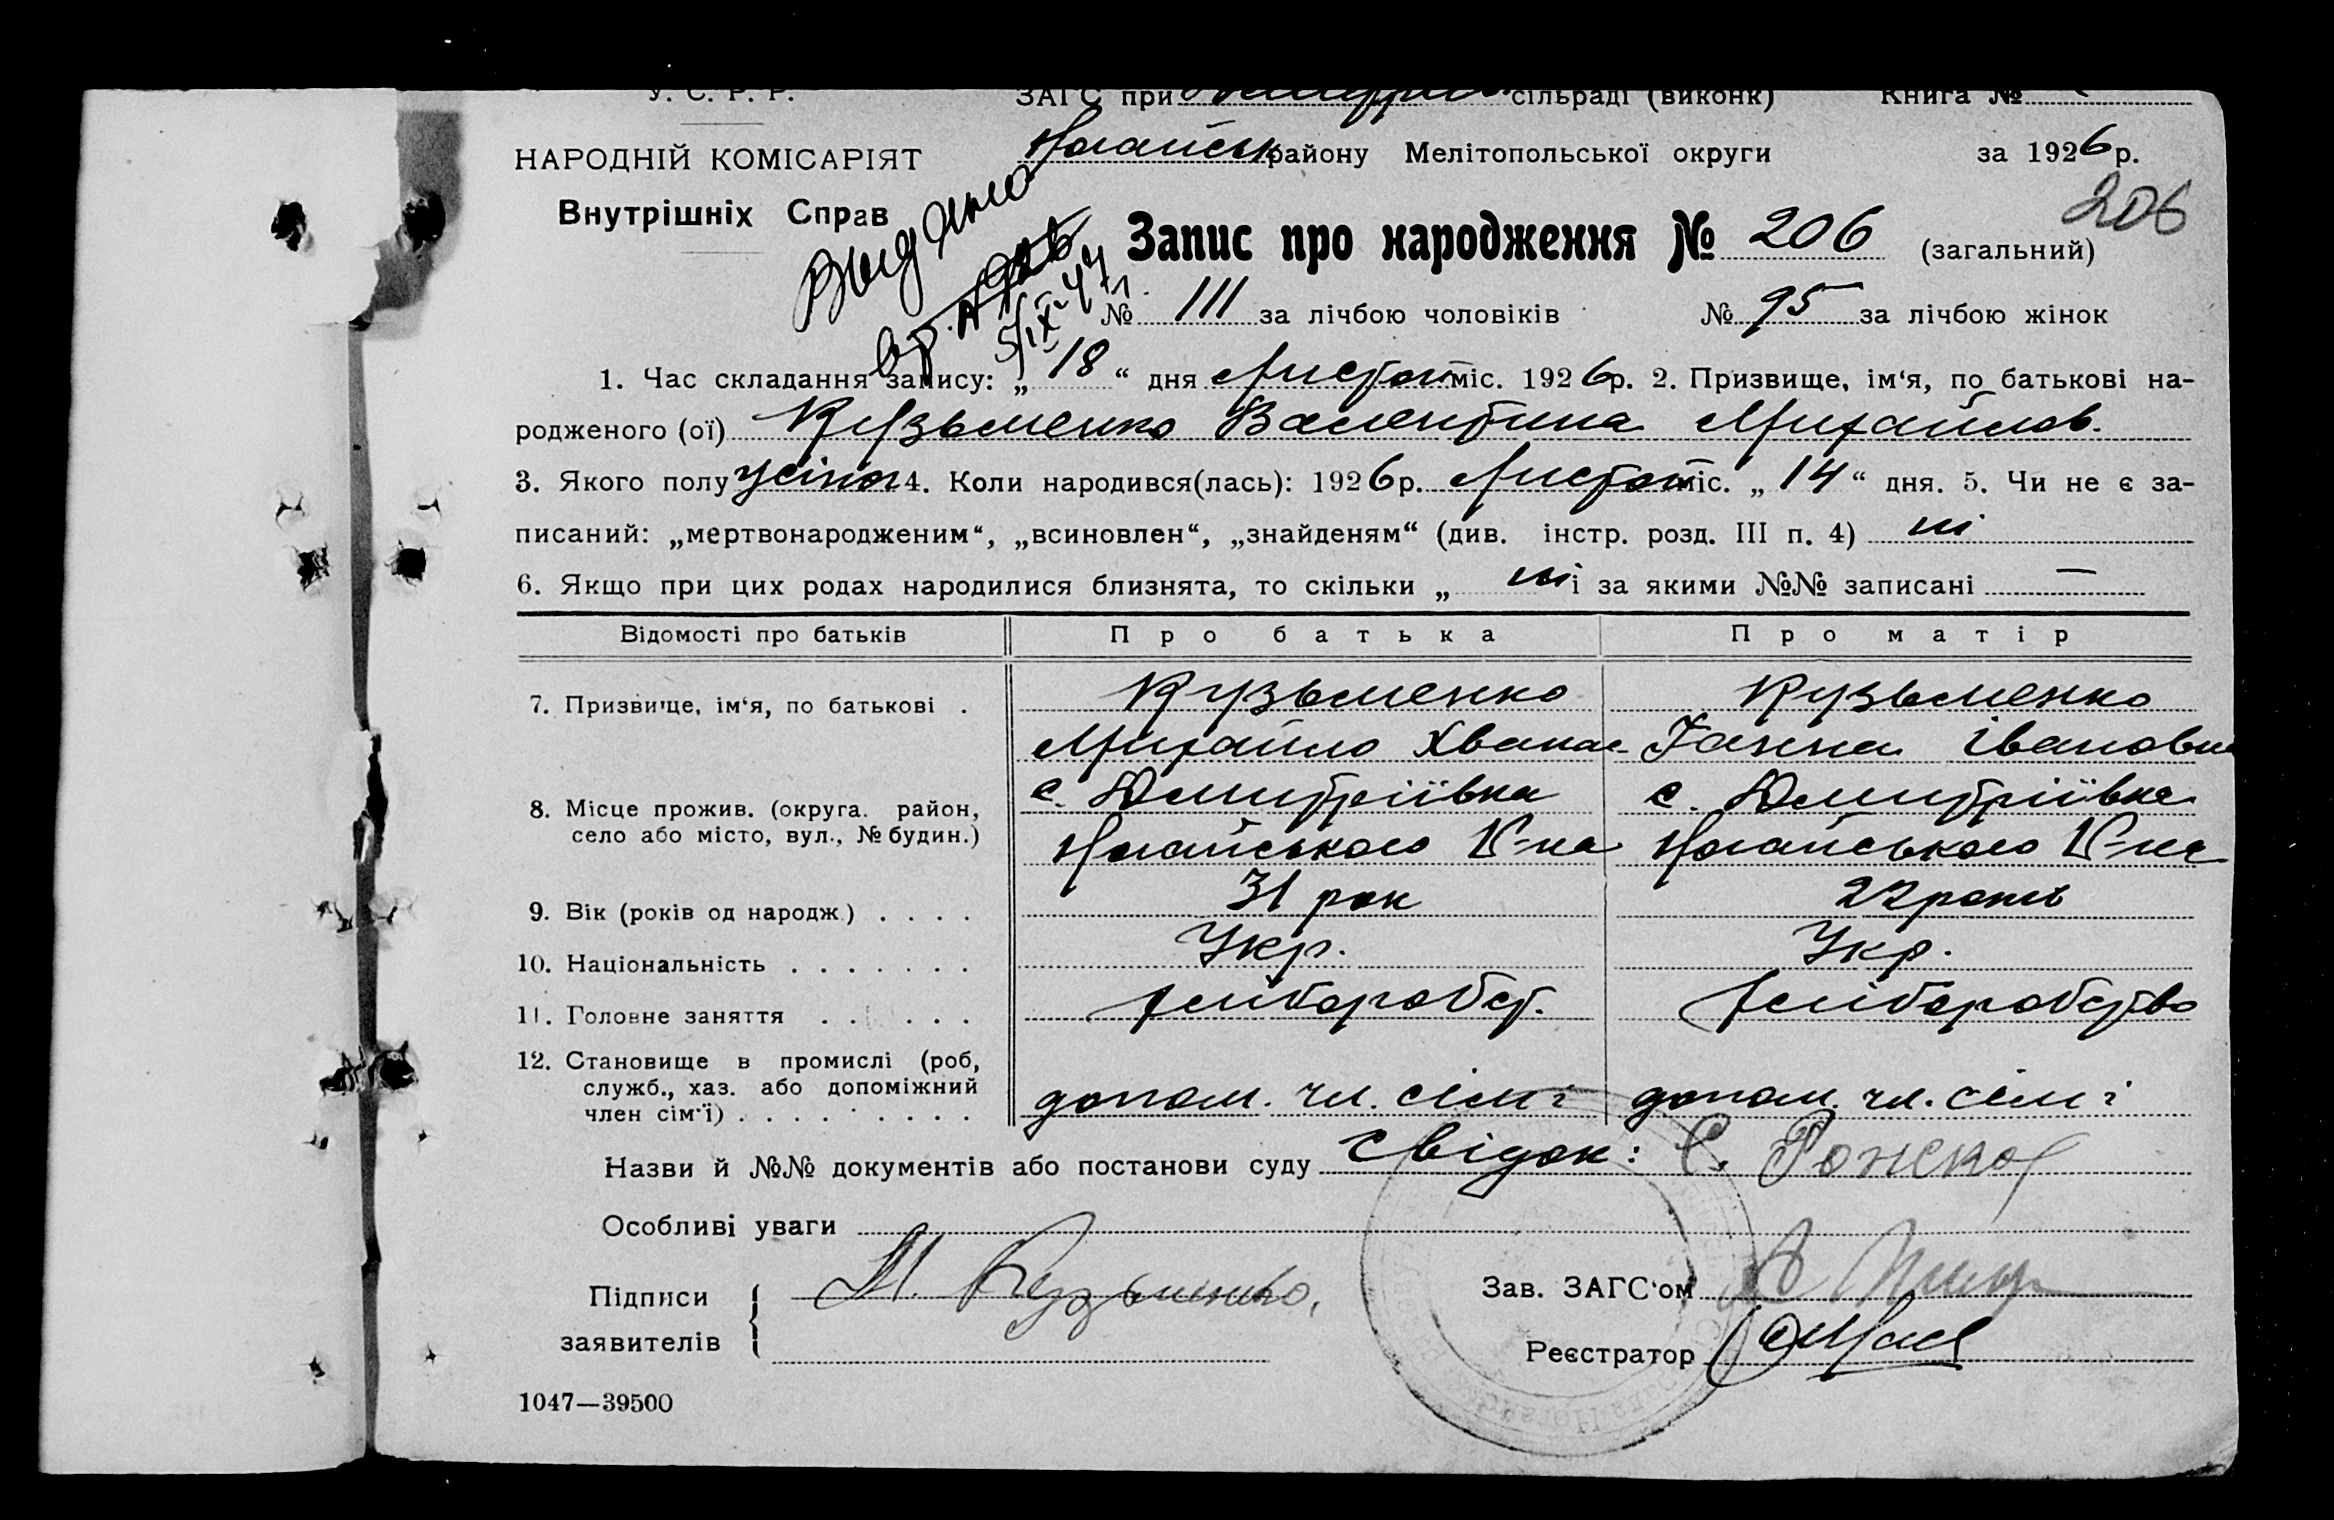 У. С. Р. Р. ЗАГС при сільраді (виконк) Книга №
НАРОДНІЙ КОМІСАРІЯТ Ногайськ району Мелітопольської округи за 1926 р.
Внутрішніх Справ
Выдано
206
Запис про народження № 206 (загальний)
5/IX-47
№ 111 за лічбою чоловіків № 95 за лічбою жінок
1. Час складання запису: „18“ дня Листоп міс. 1926 р. 2. Призвище, ім‘я, по батькові на-
родженого (ої) Кузьменко Валентина Михайлов.
3. Якого полу жіноч 4. Коли народився(лась): 1926 р. Листоп міс. „14“ дня. 5. Чи не є за-
писаний: „мертвонародженим“, „всиновлен“, „знайденям“ (див. інстр. розд. III п. 4) ні
6. Якщо при цих родах народилися близнята, то скільки „ ні і за якими №№ записані —
Відомості про батьків Про батька Про матір
7. Призвище, ім‘я, по батькові . Кузьменко Кузьменко
Михайло Хванас- Ганна Івановна
8. Місце прожив. (округа. район, с. Дмитріївка с. Дмитріївка
село або місто, вул., № будин.) Ногайського Р-на Ногайського Р-на
9. Вік (років од народж.) . . . . 31 рок 22 роки
10. Національність . . . . . . . Укр. Укр.
11. Головне заняття . . . . . . хліборобст. хліборобство
12. Становище в промислі (роб,
служб., хаз. або допоміжний
член сім‘ї) . . . . . . . . . допом. чл. сімі допом. чл. сімі
Назви й №№ документів або постанови суду Свідок: С.
Особливі уваги
Підписи М. Кузьменко, Зав. ЗАГС‘ом
заявителів Реєстратор
1047—39500